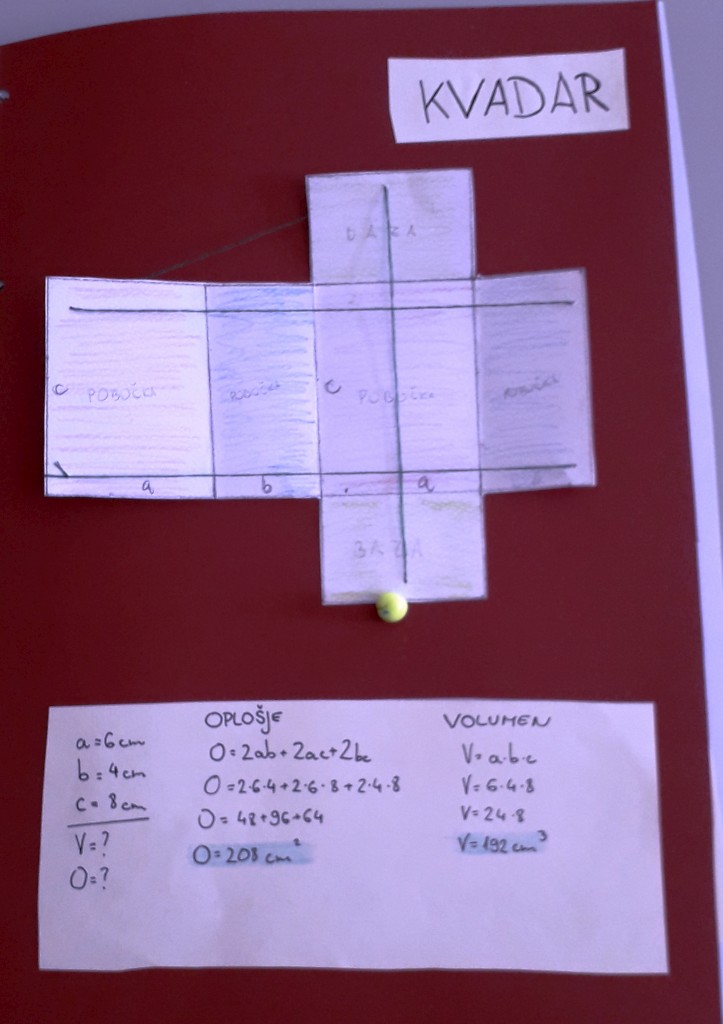 KVADAR
BAZA
c
POBOČKA
POBOČKA
c
POBOČKA
POBOČKA
a
b
a
BAZA
a = 6 cm
b = 4 cm
c = 8 cm
V = ?
O = ?
OPLOŠJE
O = 2ab + 2ac + 2bc
O = 2·6·4 + 2·6·8 + 2·4·8
O = 48 + 96 + 64
O = 208 cm²
VOLUMEN
V = a·b·c
V = 6·4·8
V = 24·8
V = 192 cm³